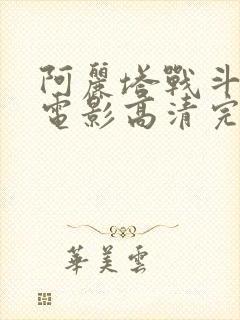 阿麗塔戰斗
電影高清完
華美雲